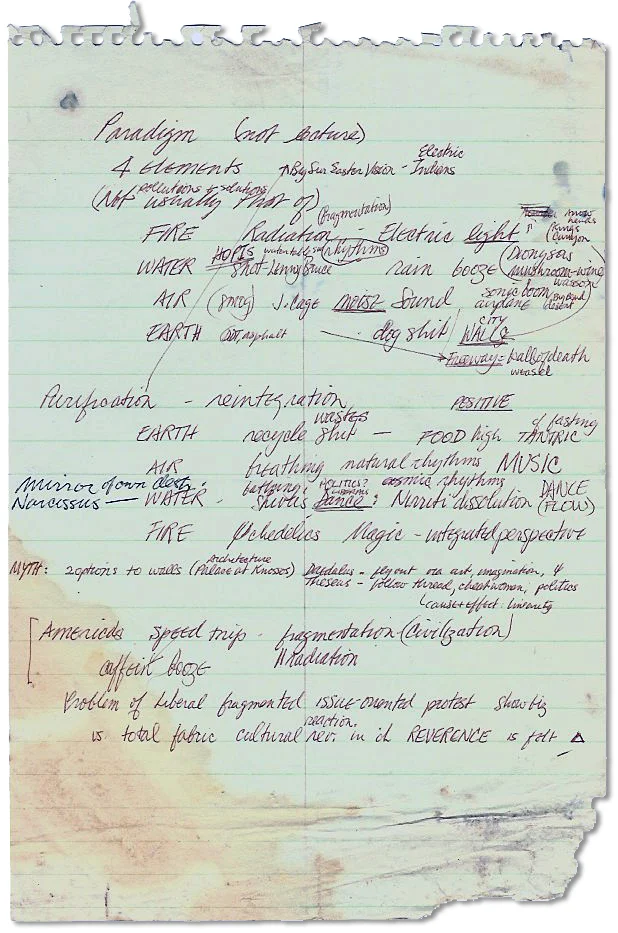 Paradigm (not lecture)
Electric
4 ELEMENTS Big Sur Easter Vision - Indians
pollutions & solutions
(Not usually thot of)
(fragmentation)
FIRE Radiation - Electric light
Kings Canyon
HOPIS water table rhythms Dionysos
WATER shot Lenny Bruce rain booze mushroom-wine
Wasson
AIR (smog) J. Cage noise sound sonic boom
airplane Big Sur desert
CITY
EARTH DDT, asphalt dog shit WALLS
Freeway = wall of death
weasel
Purification - reintegration POSITIVE
WASTES of fasting
EARTH recycle shit - FOOD high TANTRIC
AIR breathing natural rhythms MUSIC
mirror of own
bathing? POLITICS? cosmic rhythms DANCE
Narcissus - WATER - Shiva's Dance: Nirriti dissolution (FLOW)
FIRE Psychedelics Magic - integrated perspective
Architecture
MYTH: 2 options to walls (Palace at Knossos) Daedalus - fly out via art, imagination, &
Theseus - follow thread, cheat women, politics
cause & effect: linearity
America's speed trip - fragmentation (civilization)
booze radiation
Problem of liberal fragmented issue-oriented protest showbiz
reaction.
is total fabric cultural rev. in wh REVERENCE is felt